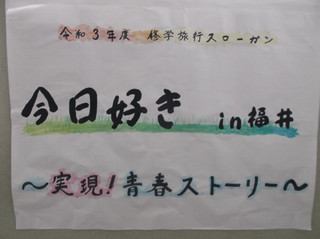 令和3年度 修学旅行スローガン
今日好き in 福井
～実現!青春ストーリー～